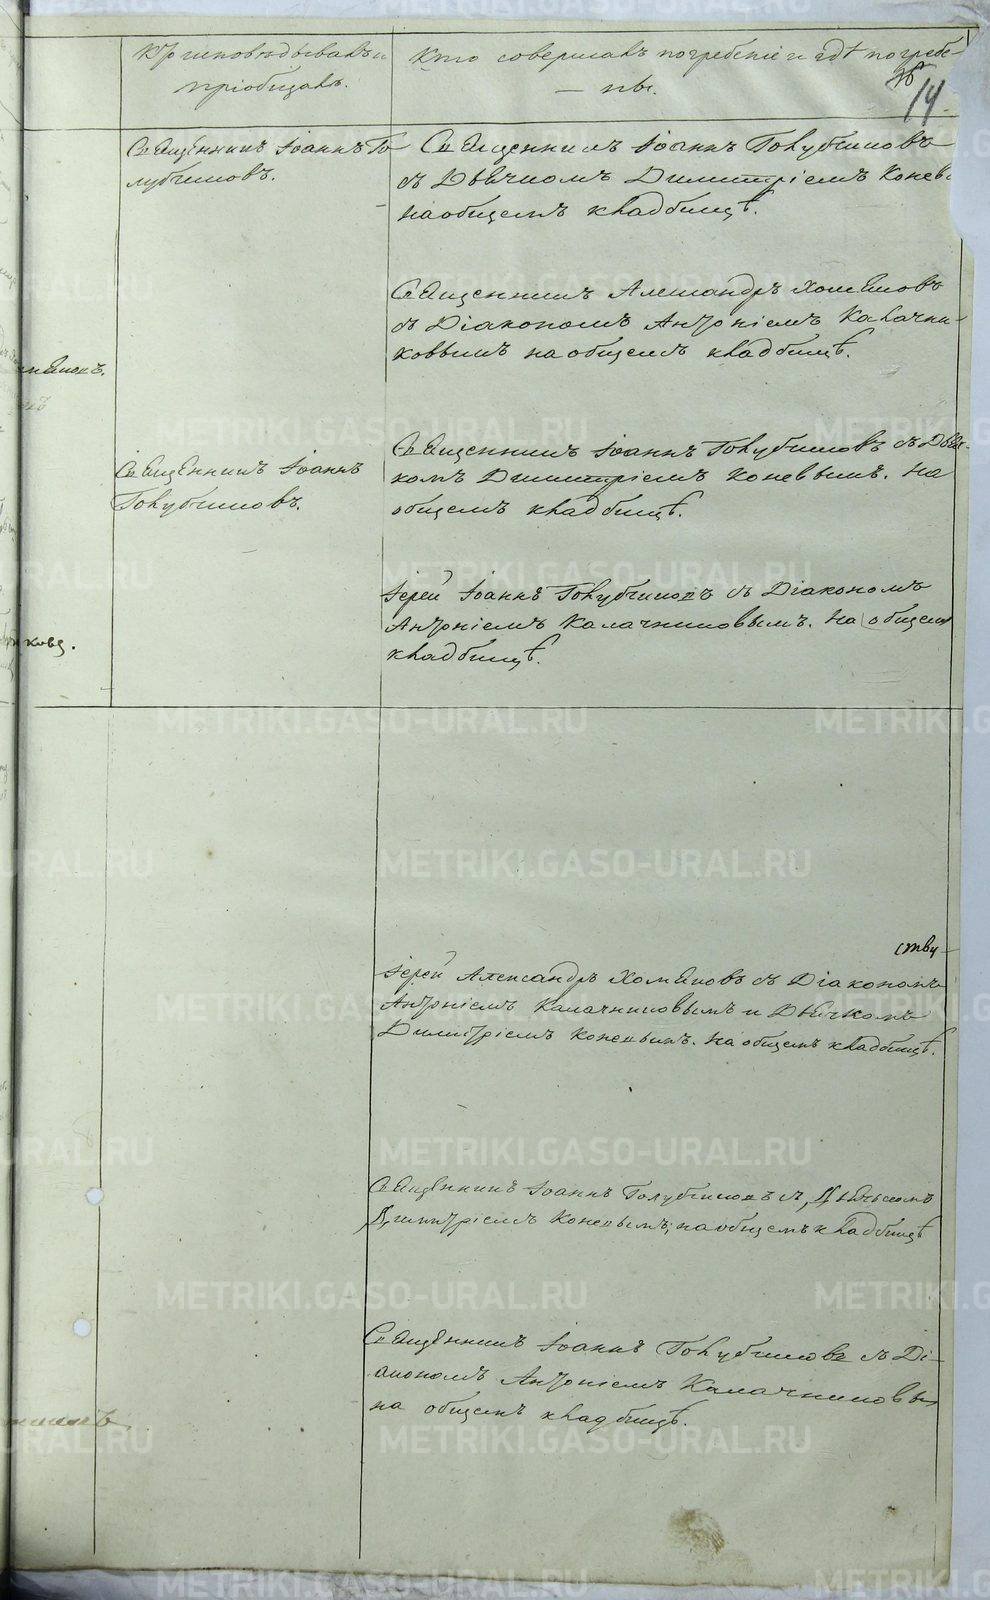 Кто исповѣдывалъ и
пріобщалъ.
Кто совершалъ погребеніе и гдѣ погребе-
ны.
14
Священникъ Іоаннъ Го-
лубчиковъ.
Священникъ Іоаннъ Голубчиковъ
съ Дьячкомъ Димитріемъ Конев
на общемъ кладбищѣ.
Священникъ Александръ Хомяковъ
съ Діакономъ Антоніемъ Калачни-
ковымъ на общемъ кладбищѣ.
Священникъ Іоаннъ
Голубчиковъ.
Священникъ Іоаннъ Голубчиковъ съ Дьяч-
комъ Димитріемъ Коневымъ. На
общемъ кладбищѣ.
Іерей Іоаннъ Голубчиковъ съ Діакономъ
Антоніемъ Калачниковымъ. На общем
кладбищѣ.
кова.
ству
Іерей Александръ Хомяковъ съ Діакономъ
Антоніемъ Калачниковымъ и Дьячкомъ
Димитріемъ Коневымъ. На общемъ кладбищѣ.
Священникъ Іоаннъ Голубчиковъ съ Дьячкомъ
Димитріемъ Коневымъ; на общемъ кладбищѣ
Священникъ Іоаннъ Голубчиковъ съ Ді-
акономъ Антоніемъ Калачниковы
на общемъ кладбищѣ.
METRIKI.GASO-URAL.RU